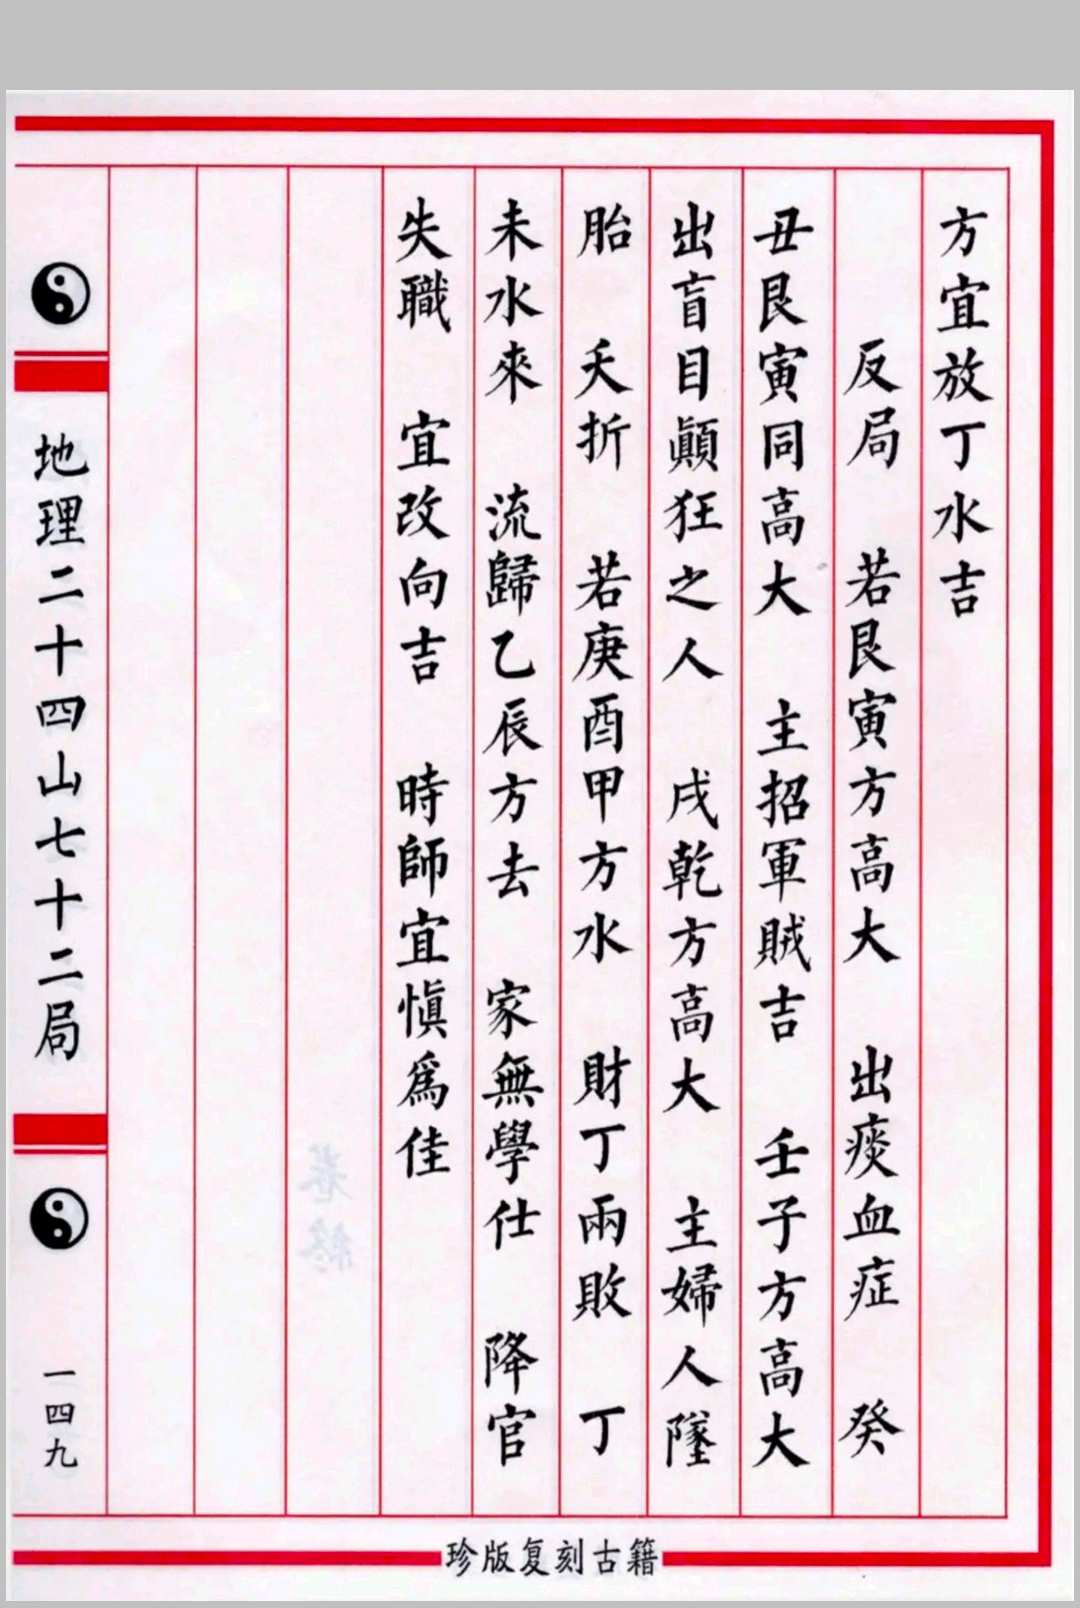 方宜放丁水吉
反局 若艮寅方高大 出痰血症 癸
丑艮寅同高大 主招軍賊吉 壬子方高大
出盲目顛狂之人 戌乾方高大 主婦人墜
胎 夭折 若庚酉甲方水 財丁兩敗 丁
未水來 流歸乙辰方去 家無學仕 降官
失職 宜改向吉 時師宜慎為佳
地理二十四山七十二局
一四九
珍版复刻古籍